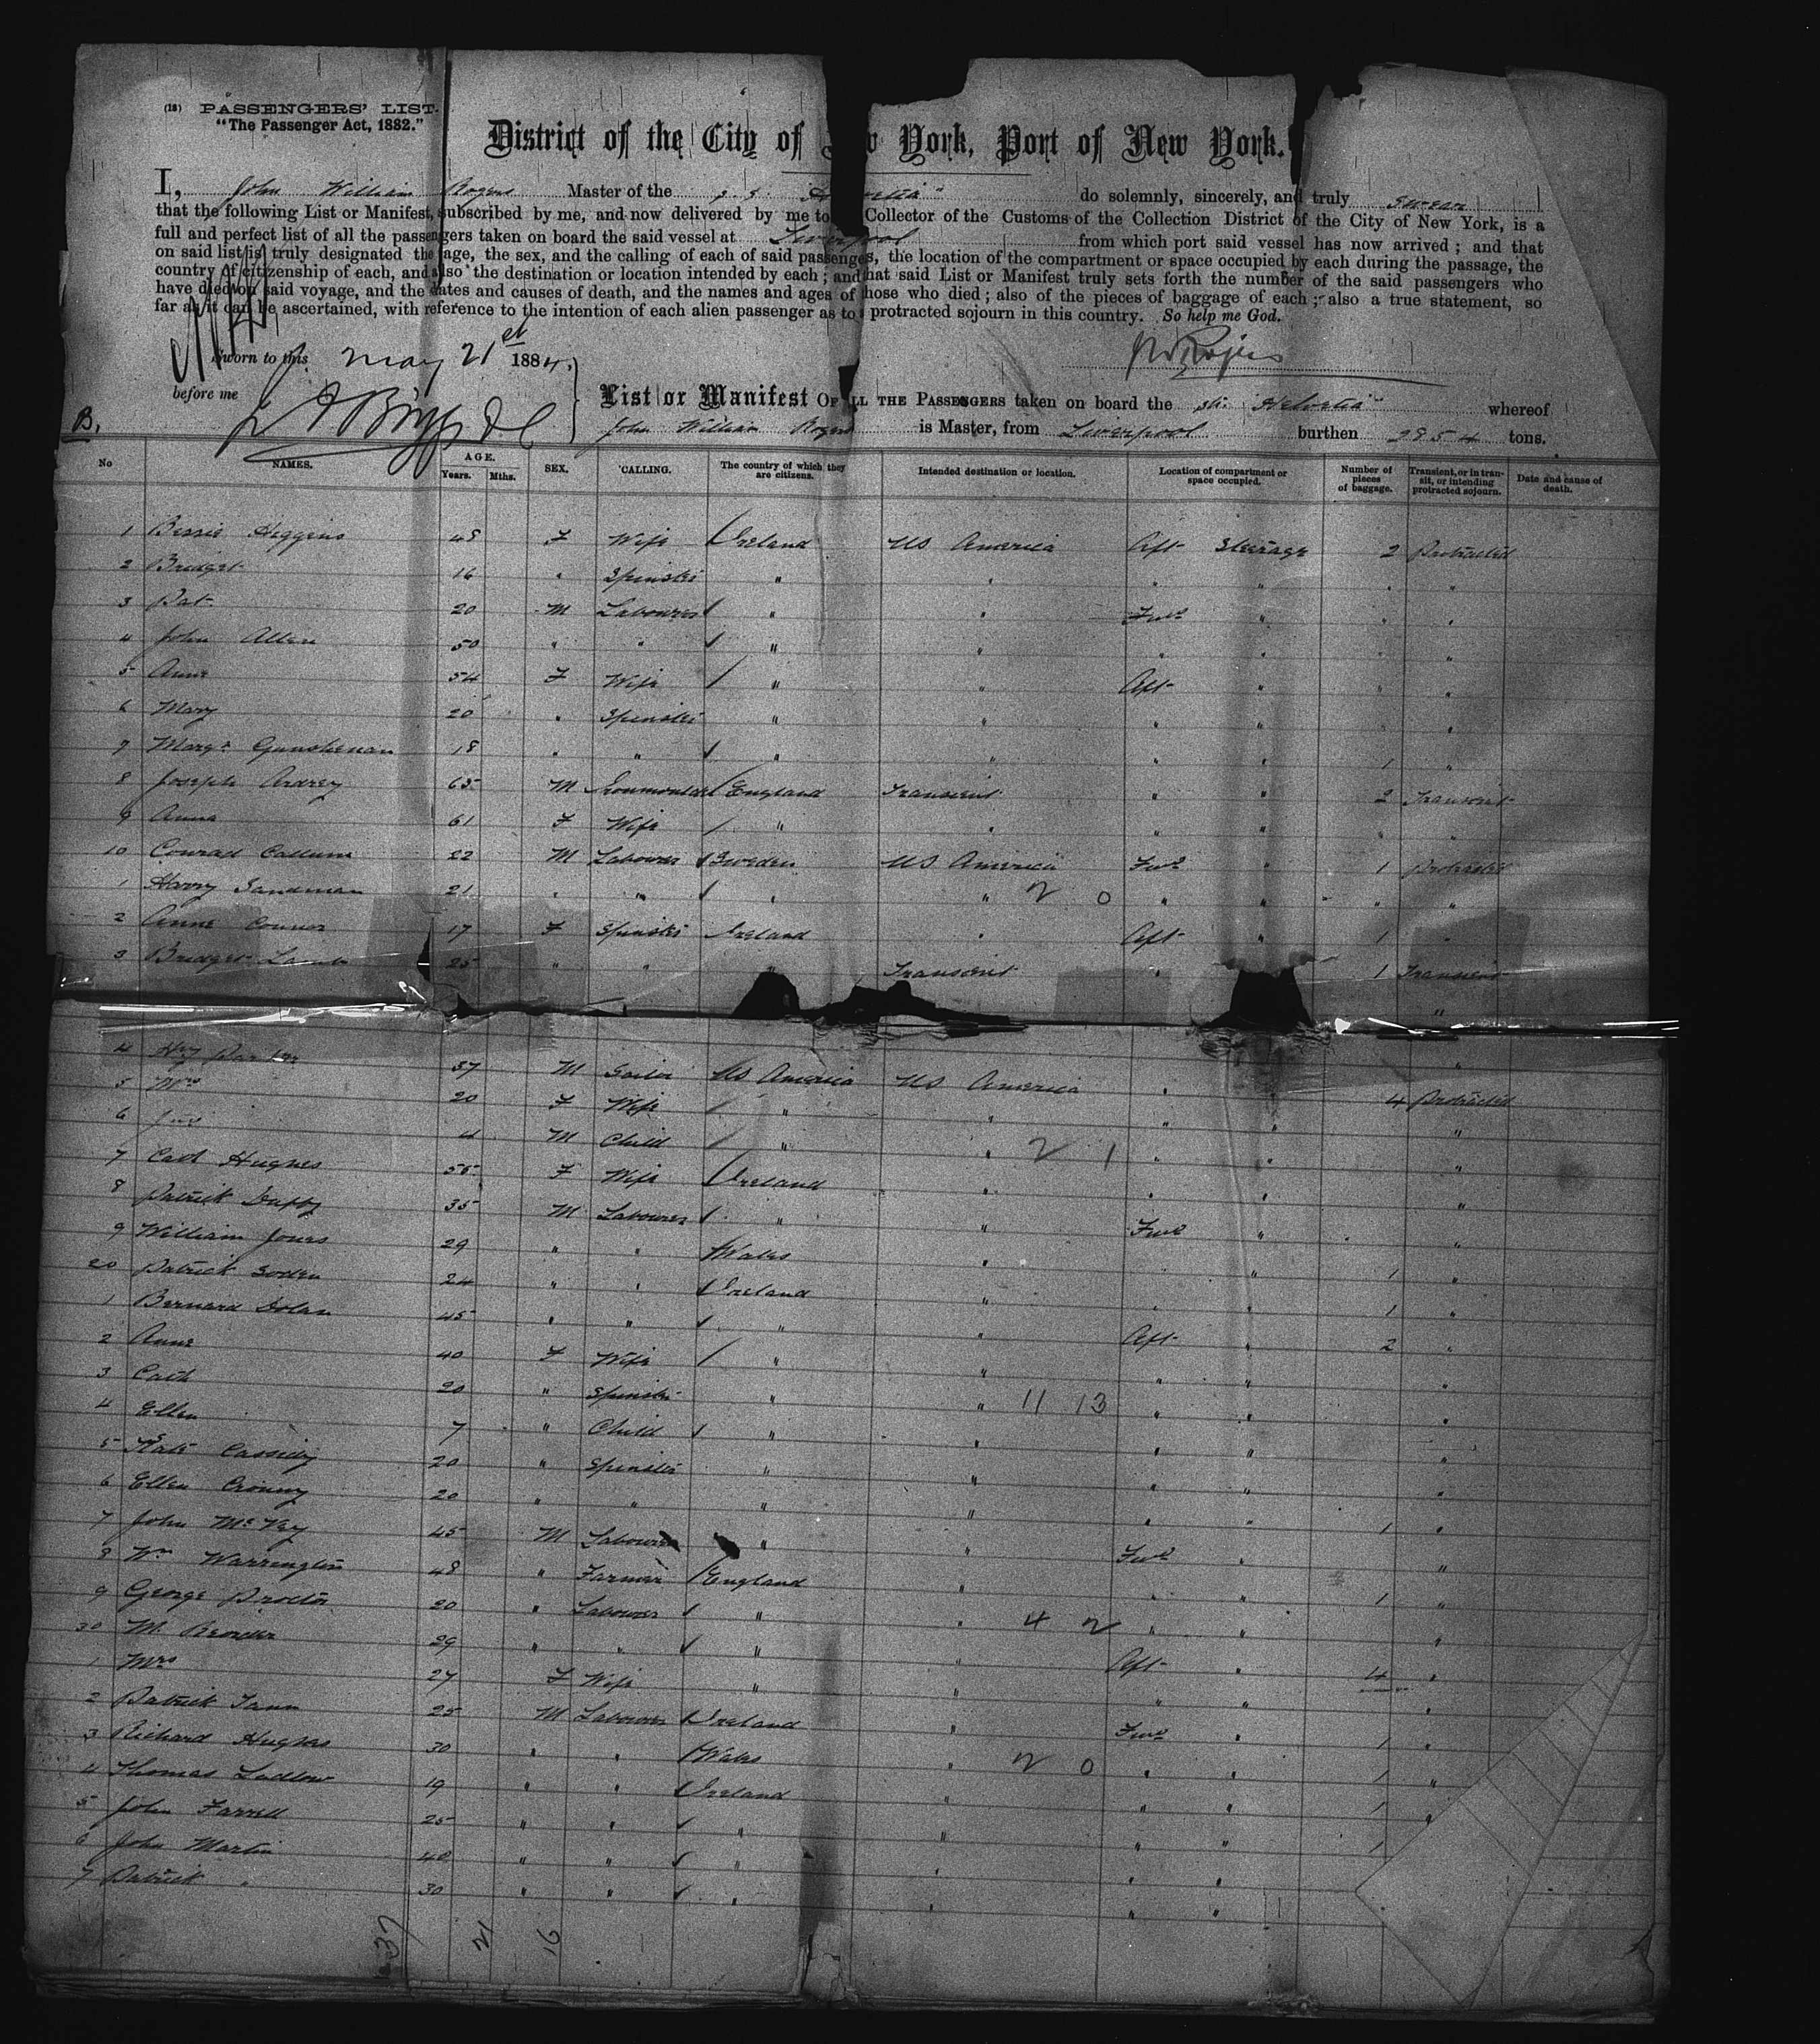 (18) PASSENGERS' LIST.
"The Passenger Act, 1882."
District of the City of New York, Port of New York.
I, John William Rogers Master of the s.s. "Helvetia" do solemnly, sincerely, and truly swear
that the following List or Manifest, subscribed by me, and now delivered by me to Collector of the Customs of the Collection District of the City of New York, is a
full and perfect list of all the passengers taken on board the said vessel at Liverpool from which port said vessel has now arrived; and that
on said list is truly designated the age, the sex, and the calling of each of said passengers, the location of the compartment or space occupied by each during the passage, the
country of citizenship of each, and also the destination or location intended by each; and that said List or Manifest truly sets forth the number of the said passengers who
have died on said voyage, and the dates and causes of death, and the names and ages of those who died; also of the pieces of baggage of each; also a true statement, so
far as it can be ascertained, with reference to the intention of each alien passenger as to protracted sojourn in this country. So help me God.
Sworn to this May 21st 1884.
J W Rogers
before me
List or Manifest OF ALL THE PASSENGERS taken on board the str. "Helvetia" whereof
B. John William Rogers is Master, from Liverpool burthen 2954 tons.
No NAMES. AGE. Years. Mths. SEX. CALLING. The country of which they are citizens. Intended destination or location. Location of compartment or space occupied. Number of pieces of baggage. Transient, or in transit, or intending protracted sojourn. Date and cause of death.
1 Bessie Higgins 48 F Wife Ireland US America Aft Steerage 2 Protracted
2 Bridget 16 " Spinster " " " " " "
3 Pat 20 M Labourer " " Fwd " " "
4 John Allen 50 " " " " " " " "
5 Anne 54 F Wife " " Aft " " "
6 Mary 20 " Spinster " " " " "
7 Margt Gunshenan 18 " " " " " " 1 "
8 Joseph Ardrey 65 M Ironmoulder England Transient " " 2 Transient
9 Anna 61 F Wife " " " " " "
10 Conrad Callum 22 M Labourer Sweden US America Fwd " 1 Protracted
1 Harry Sandman 21 " " " " 2 0 " " " "
2 Anne Connor 17 F Spinster Ireland " Aft " 1 "
3 Bridget Lamb 25 " " " Transient " 1 Transient
4 Hy 37 M Sailor US America US America " "
5 Mrs 20 F Wife " " " " 4 Protracted
6 4 M Child " " 2 1 " " "
7 Cath Hughes 55 F Wife Ireland " " " "
8 Patrick Duffy 35 M Labourer " " Fwd " "
9 William Jones 29 " " Wales " " 1 "
20 Patrick Soden 24 " " Ireland " " " 1 "
1 Bernard Dolan 45 " " " " Aft " 2 "
2 Anne 40 F Wife " " " " "
3 Cath 20 " Spinster " " 11 13 " " "
4 Ellen 7 " Child " " " " "
5 Kate Cassidy 20 " Spinster " " " " "
6 Ellen Croning 20 " " " " " " 1 "
7 John McVey 45 M Labourer " " Fwd " "
8 Wm Warrington 48 " Farmer England " " " 1 "
9 George Proctor 20 " Labourer " " 4 2 " " "
30 M 29 " " " " Aft " 4 "
1 Mrs 27 F Wife " " " " "
2 Patrick 25 M Labourer Ireland " Fwd " 1 "
3 Richard Hughes 30 " " Wales " 2 0 " " 1 "
4 Thomas Ludlow 19 " " Ireland " " " 1 "
5 John Farrell 25 " " " " " " 1
6 John Martin 40 " " " " " "
7 Patrick " 30 " " " " " "